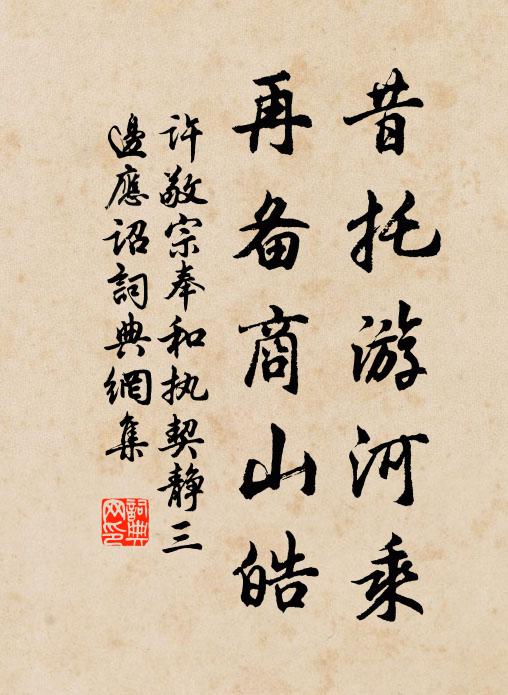 昔托游河乘
再备商山皓
许敬宗奉和执契静三
邊應诏詞典網集
詞典网印